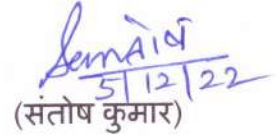 5/12/22
(संतोष कुमार)